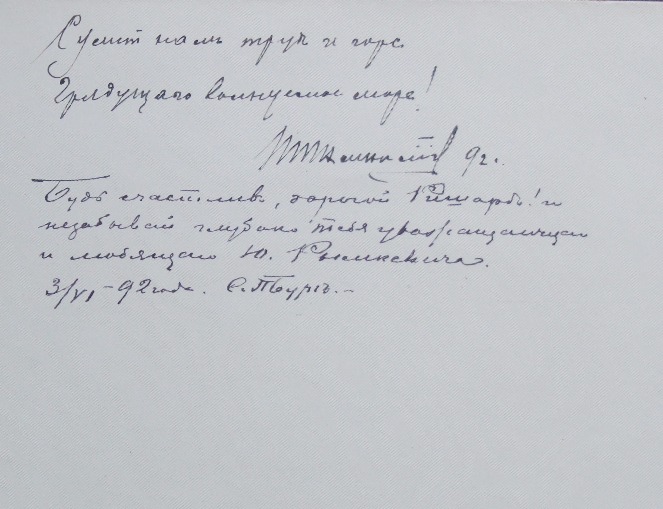 Сулит намъ трудъ и горе
Грядущаго волнуемое море!
92.
Будь счастливъ, дорогой Ришардъ! и
незабывай глубоко тебя уважающаго
и любящаго Ю.
3/VI – 92 года. С.П.Бургъ. –